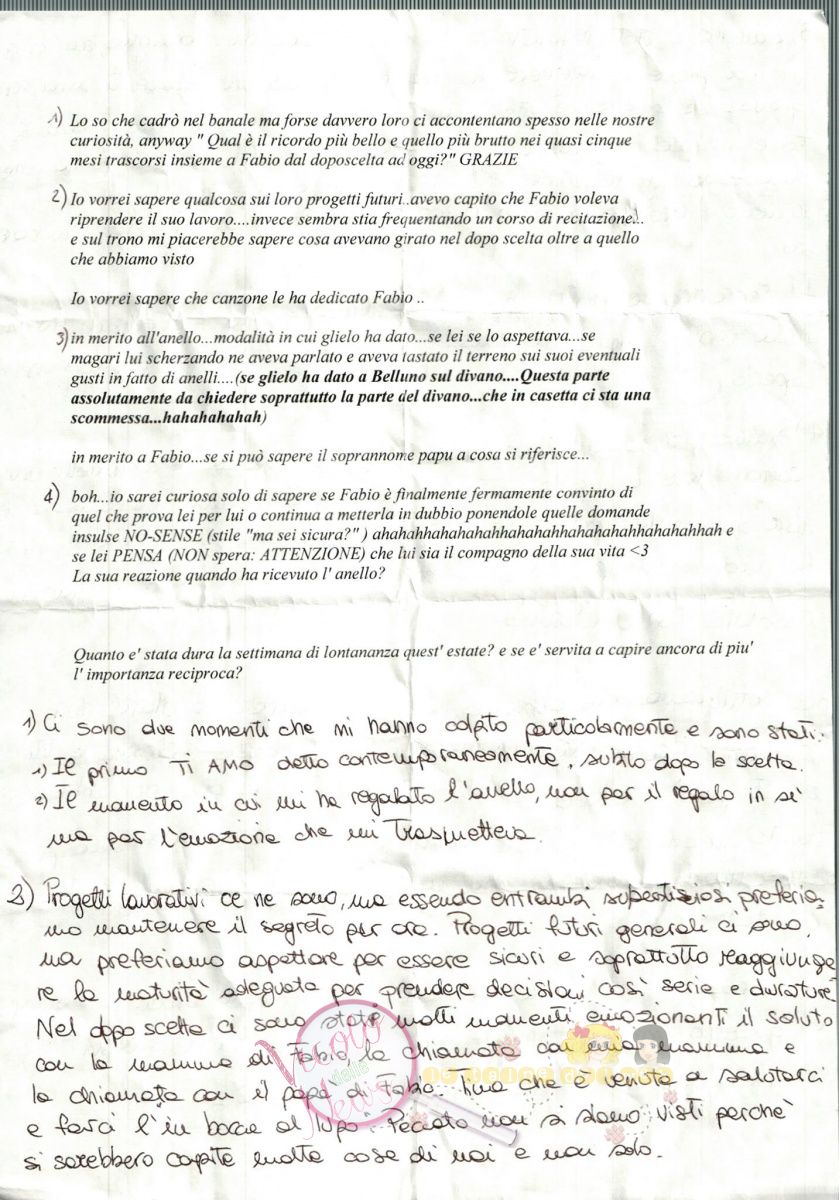 1) Lo so che cadrò nel banale ma forse davvero loro ci accontentano spesso nelle nostre
curiosità, anyway " Qual è il ricordo più bello e quello più brutto nei quasi cinque
mesi trascorsi insieme a Fabio dal doposcelta ad oggi?" GRAZIE
2) Io vorrei sapere qualcosa sui loro progetti futuri..avevo capito che Fabio voleva
riprendere il suo lavoro....invece sembra stia frequentando un corso di recitazione...
e sul trono mi piacerebbe sapere cosa avevano girato nel dopo scelta oltre a quello
che abbiamo visto
Io vorrei sapere che canzone le ha dedicato Fabio ..
3) in merito all'anello...modalità in cui glielo ha dato...se lei se lo aspettava...se
magari lui scherzando ne aveva parlato e aveva tastato il terreno sui suoi eventuali
gusti in fatto di anelli....(se glielo ha dato a Belluno sul divano....Questa parte
assolutamente da chiedere soprattutto la parte del divano...che in casetta ci sta una
scommessa...hahahahahah)
in merito a Fabio...se si può sapere il soprannome papu a cosa si riferisce...
4) boh...io sarei curiosa solo di sapere se Fabio è finalmente fermamente convinto di
quel che prova lei per lui o continua a metterla in dubbio ponendole quelle domande
insulse NO-SENSE (stile "ma sei sicura?" ) ahahahhahahahahhahahahhahahahahhahahahhah e
se lei PENSA (NON spera: ATTENZIONE) che lui sia il compagno della sua vita <3
La sua reazione quando ha ricevuto l' anello?
Quanto e' stata dura la settimana di lontananza quest' estate? e se e' servita a capire ancora di piu'
l' importanza reciproca?
1) Ci sono due momenti che mi hanno colpito particolarmente e sono stati:
1) Il primo TI AMO detto contemporaneamente, subito dopo la scelta.
2) Il momento in cui mi ha regalato l'anello, non per il regalo in sè
ma per l'emozione che mi trasmetteva.
2) Progetti lavorativi ce ne sono, ma essendo entrambi superstiziosi preferia=
mo mantenere il segreto per ora. Progetti futuri generali ci sono,
ma preferiamo aspettare per essere sicuri e soprattutto raggiunge
re la maturità adeguata per prendere decisioni così serie e durature
Nel dopo scelta ci sono stati molti momenti emozionanti il saluto
con la mamma di Fabio, la chiamata con mia mamma e
la chiamata con il papà di Fabio. Tina che è venuta a salutarci
e farci l'in bocca al lupo. Peccato non si siano visti perchè
si sarebbero capite molte cose di noi e non solo.
Vicolo
delle
News